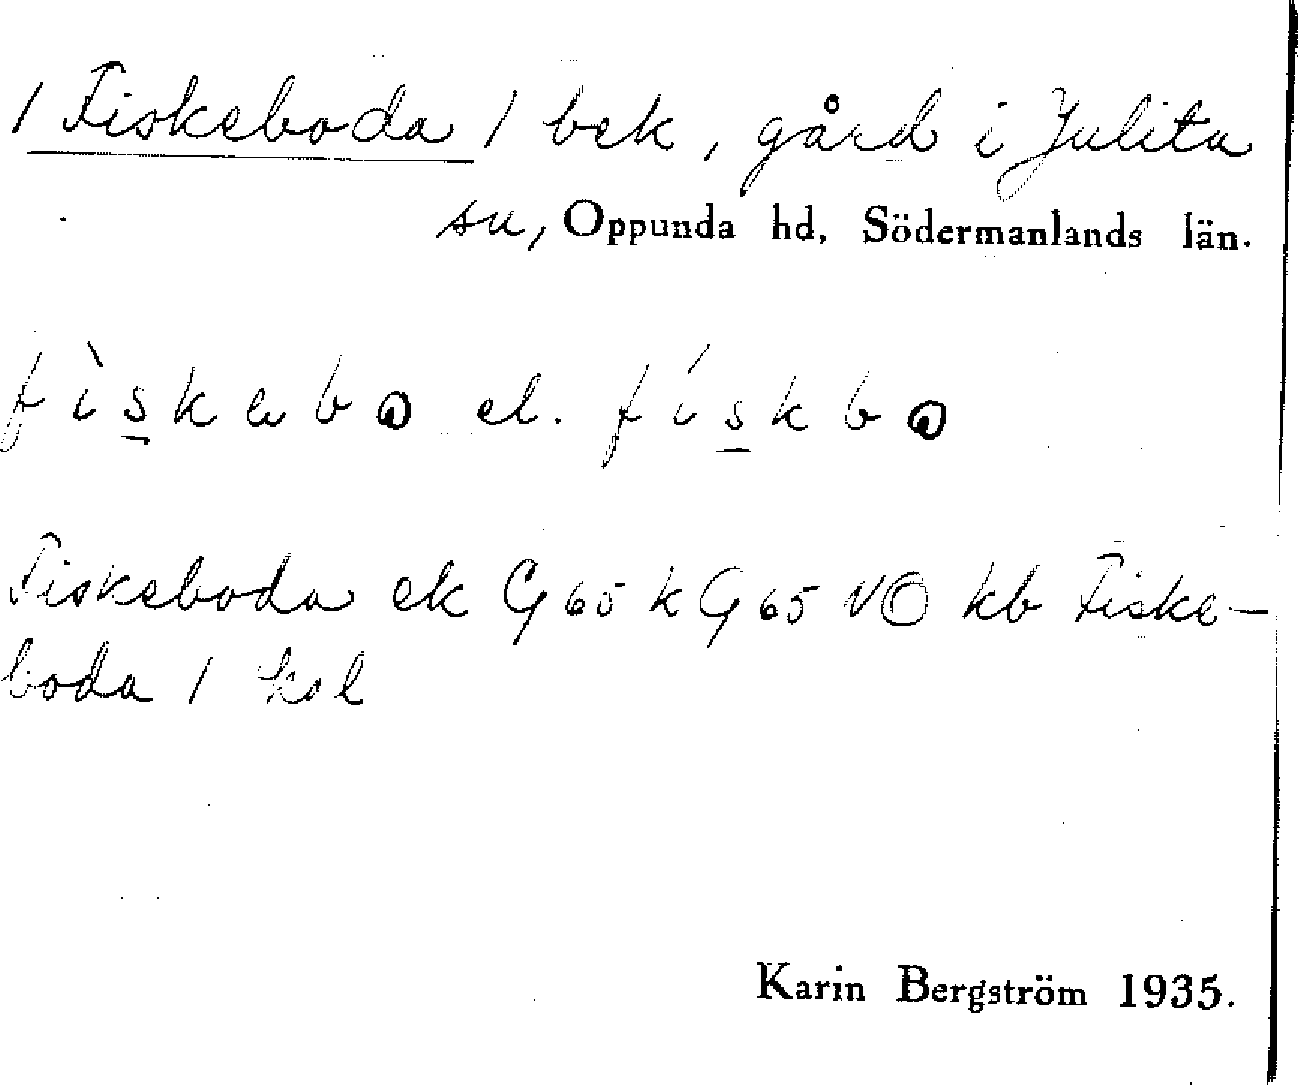 / Fiskeboda / bek, gård i Julita
sn, Oppunda hd, Södermanlands län.
fìskebo el. fískbo
Fiskeboda ek G 65 k G 65 VO kb Fiske-
boda / ksl
Karin Bergström 1935.